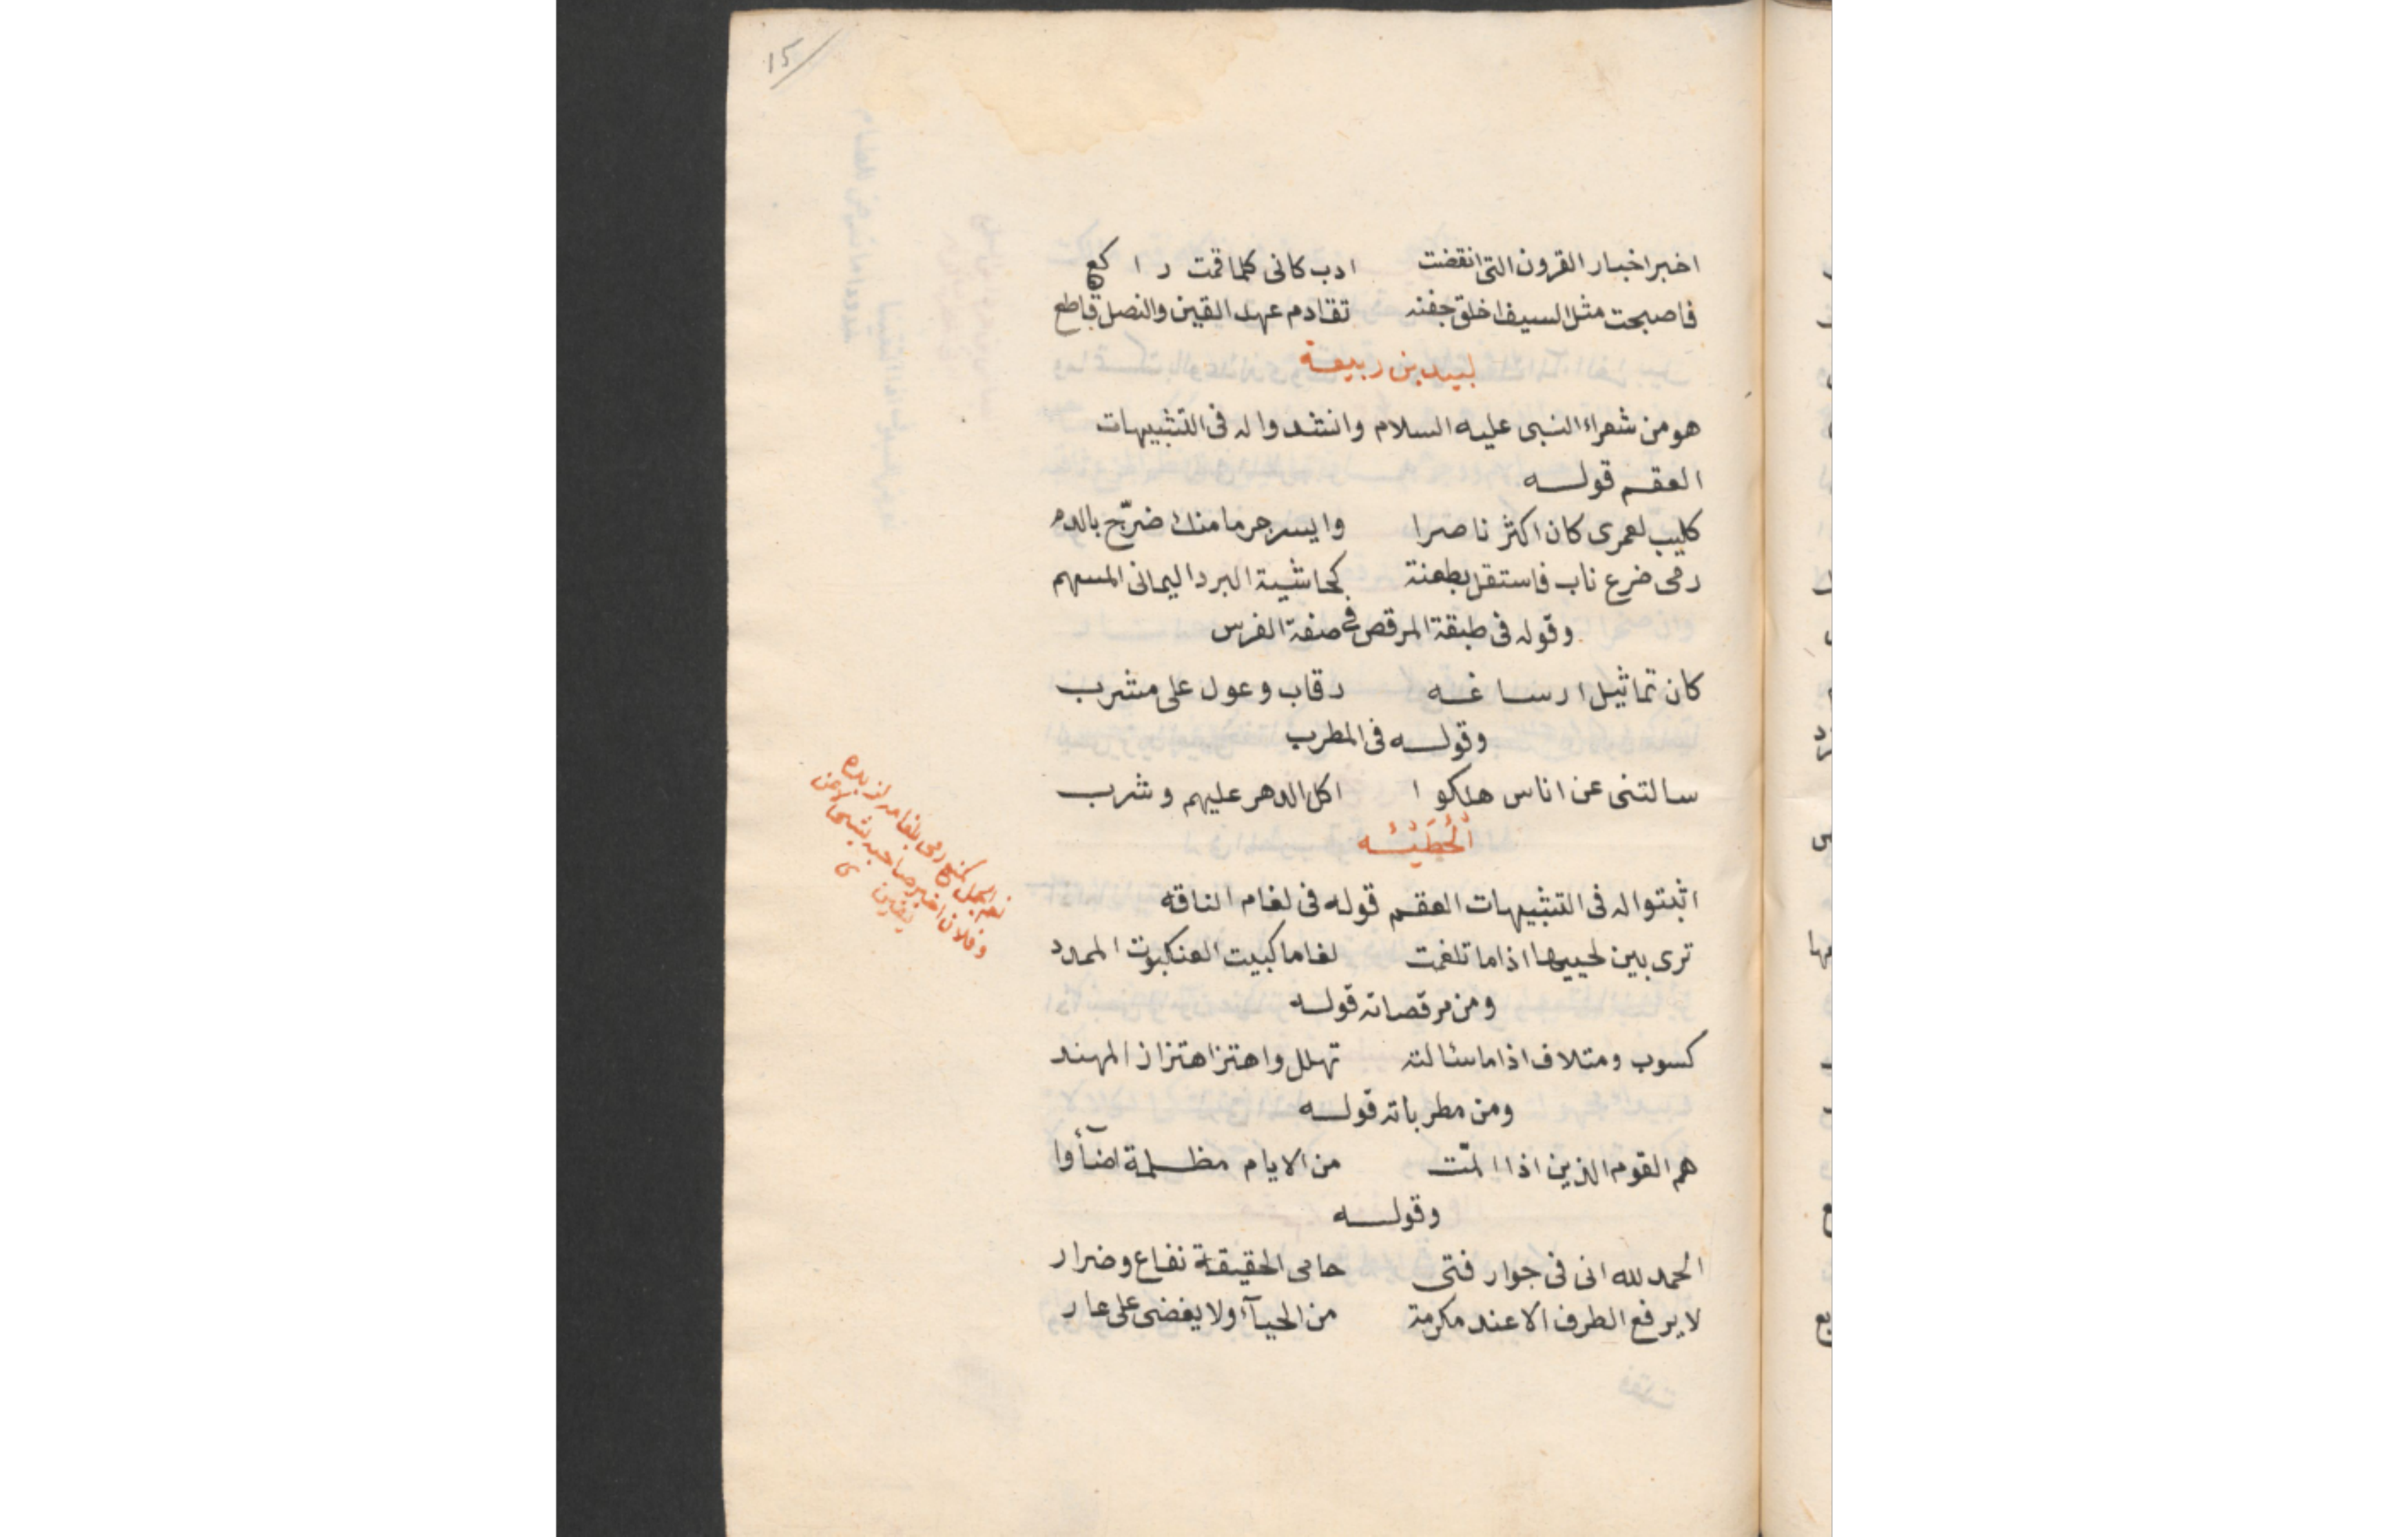 15
اخبر اخبار القرون التى انقضت ادب كانى كلما قمت راكع
فاصبحت مثل السيف اخلق جفنه تقادم عهد القين والنصل قاطع
لبيد بن ربيعة
هو من شعراء النبى عليه السلام وانشدوا له فى التشبيهات
العقم قوله
كليب لعمرى كان اكثر ناصرا وايسر جرما منك ضرّج بالدم
رمى ضرع ناب فاستقل بطعنة كحاشية البرد اليمانى المسهم
وقوله فى طبقة المرقص فى صفة الفرس
كان تماثيل ارساغه رقاب وعول على مشرب
وقوله فى المطرب
سالتنى عن اناس هلكوا اكل الدهر عليهم وشرب
اَلْحُطَيْئه
اثبتوا له فى التشبيهات العقم قوله فى لغام الناقه
ترى بين لحييها اذا ما تلغمت لغاما كبيت العنكبوت الممدد
ومن مرقصاته قوله
كسوب ومتلاف اذا ما سئالته تهلل واهتز اهتزاز المهند
ومن مطرباته قوله
هم القوم الذين اذا المّت من الايام مظلمة اضآأوا
وقوله
الحمد لله انى فى جوار فتى حامى الحقيقة نفاع وضرار
لا يرفع الطرف الا عند مكرمة من الحيآء ولا يغضى على عار
الجمل كمنع رمى بلغامه لزبده
وفلان اخبر صاحبه بشئ لا عن
يقين